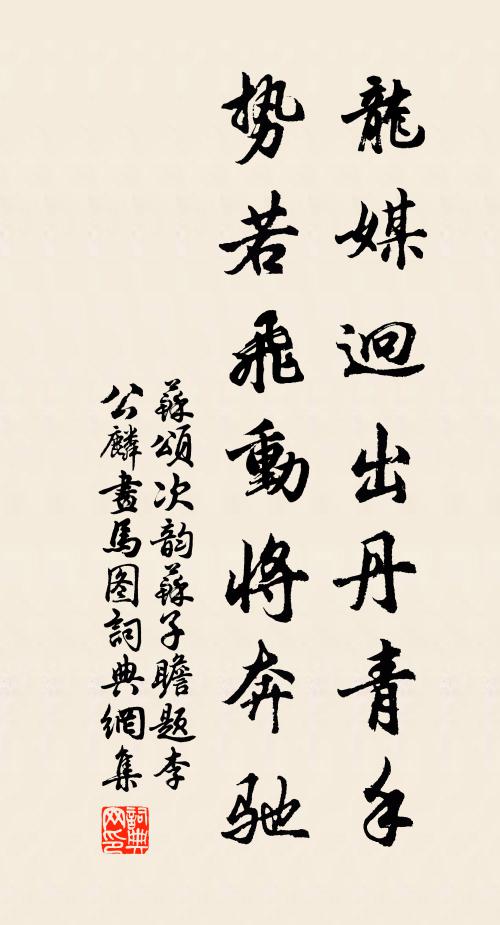 龍媒迴出丹青手
势若飛動將奔馳
蘇頌次韵蘇子瞻题李
公麟畫馬图詞典網集
詞典網印